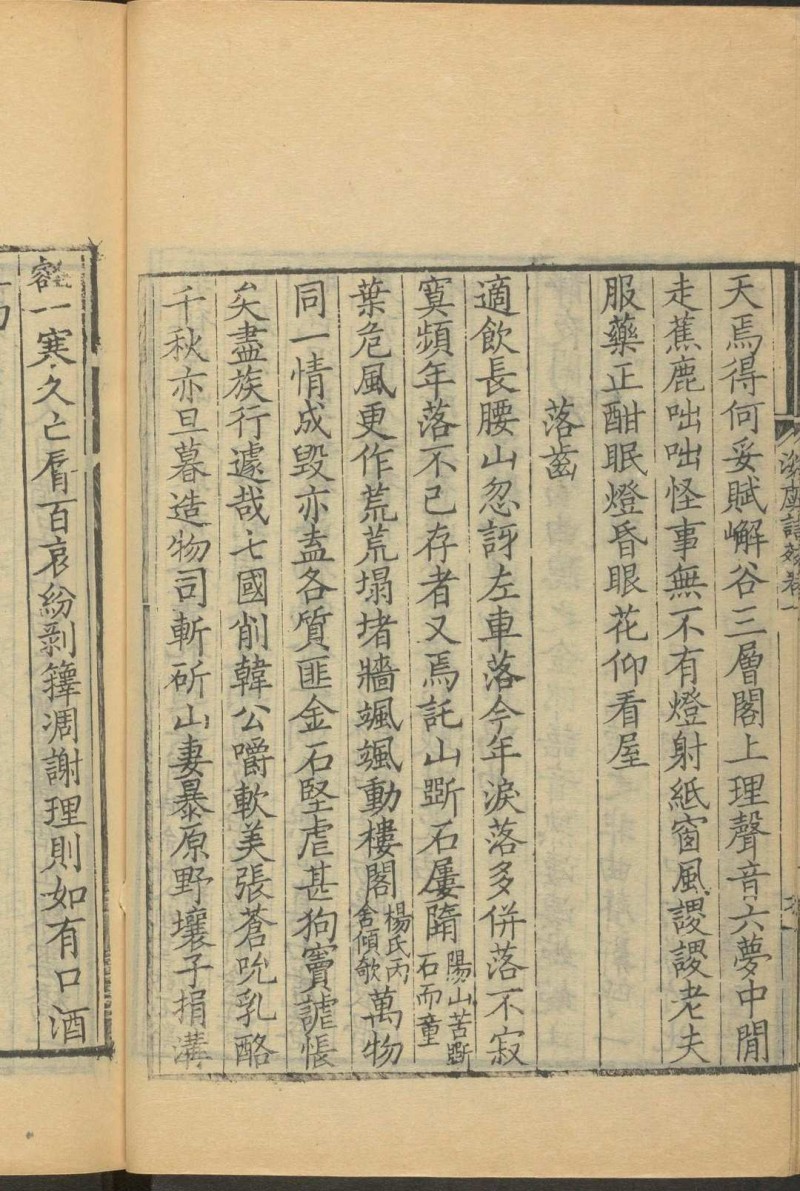 天焉得何妥賦嶰谷三層閣上理聲音六夢中閒
走蕉鹿咄咄怪事無不有燈射紙窗風謖謖老夫
服藥正酣眠燈昏眼花仰看屋
落齒
適飲長腰山忽訝左車落今年淚落多併落不寂
寞頻年落不已存者又焉託山斲石屢隋陽山苦斲石而童
葉危風更作荒荒塌堵牆颯颯動樓閣楊氏丙舍傾欹萬物
同一情成毀亦盍各質匪金石堅虐甚狗竇謔悵
矣盡族行遽哉七國削韓公嚼軟美張蒼吮乳酪
千秋亦旦暮造物司斬斫山妻暴原野壤子捐溝
壑一寒久亡脣百哀紛剥籜凋謝理則如有口酒